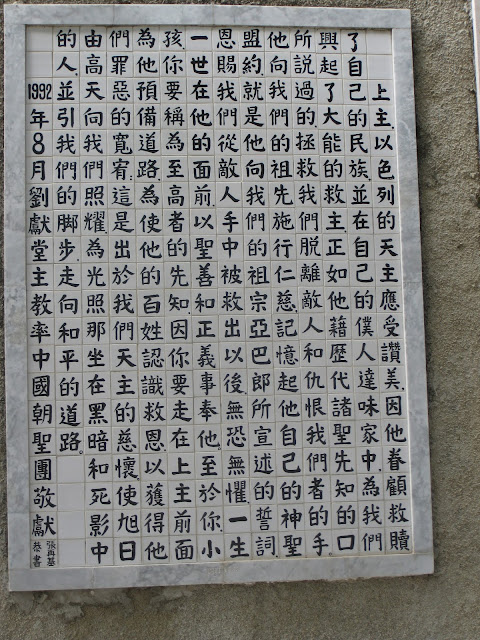 上主.以色列的天主應受讚美.因他眷顧救贖
了自己的民族.並在自己的僕人達味家中.為我們
興起了大能的救主正如他藉歷代諸聖先知的口
所說過的拯救我們脫離敵人和仇恨我們者的手
他向我們的祖先施行仁慈記憶起他自己的神聖
盟約就是他向我們的祖宗亞巴郎所宣述的誓詞
恩賜我們從敵人手中被救出以後無恐無懼一生
一世在他的面前.以聖善和正義事奉他.至於你小
孩.你要稱為至高者的先知因你要走在上主前面
為他預備道路.為使他的百姓認識救恩以獲得他
們罪惡的寬宥.這是出於我們天主的慈懷.使旭日
由高天向我們照耀為光照那坐在黑暗和死影中
的人.並引我們的腳步.走向和平的道路。
1992年8月劉獻堂主教率中國朝聖團敬獻
張再基
恭書